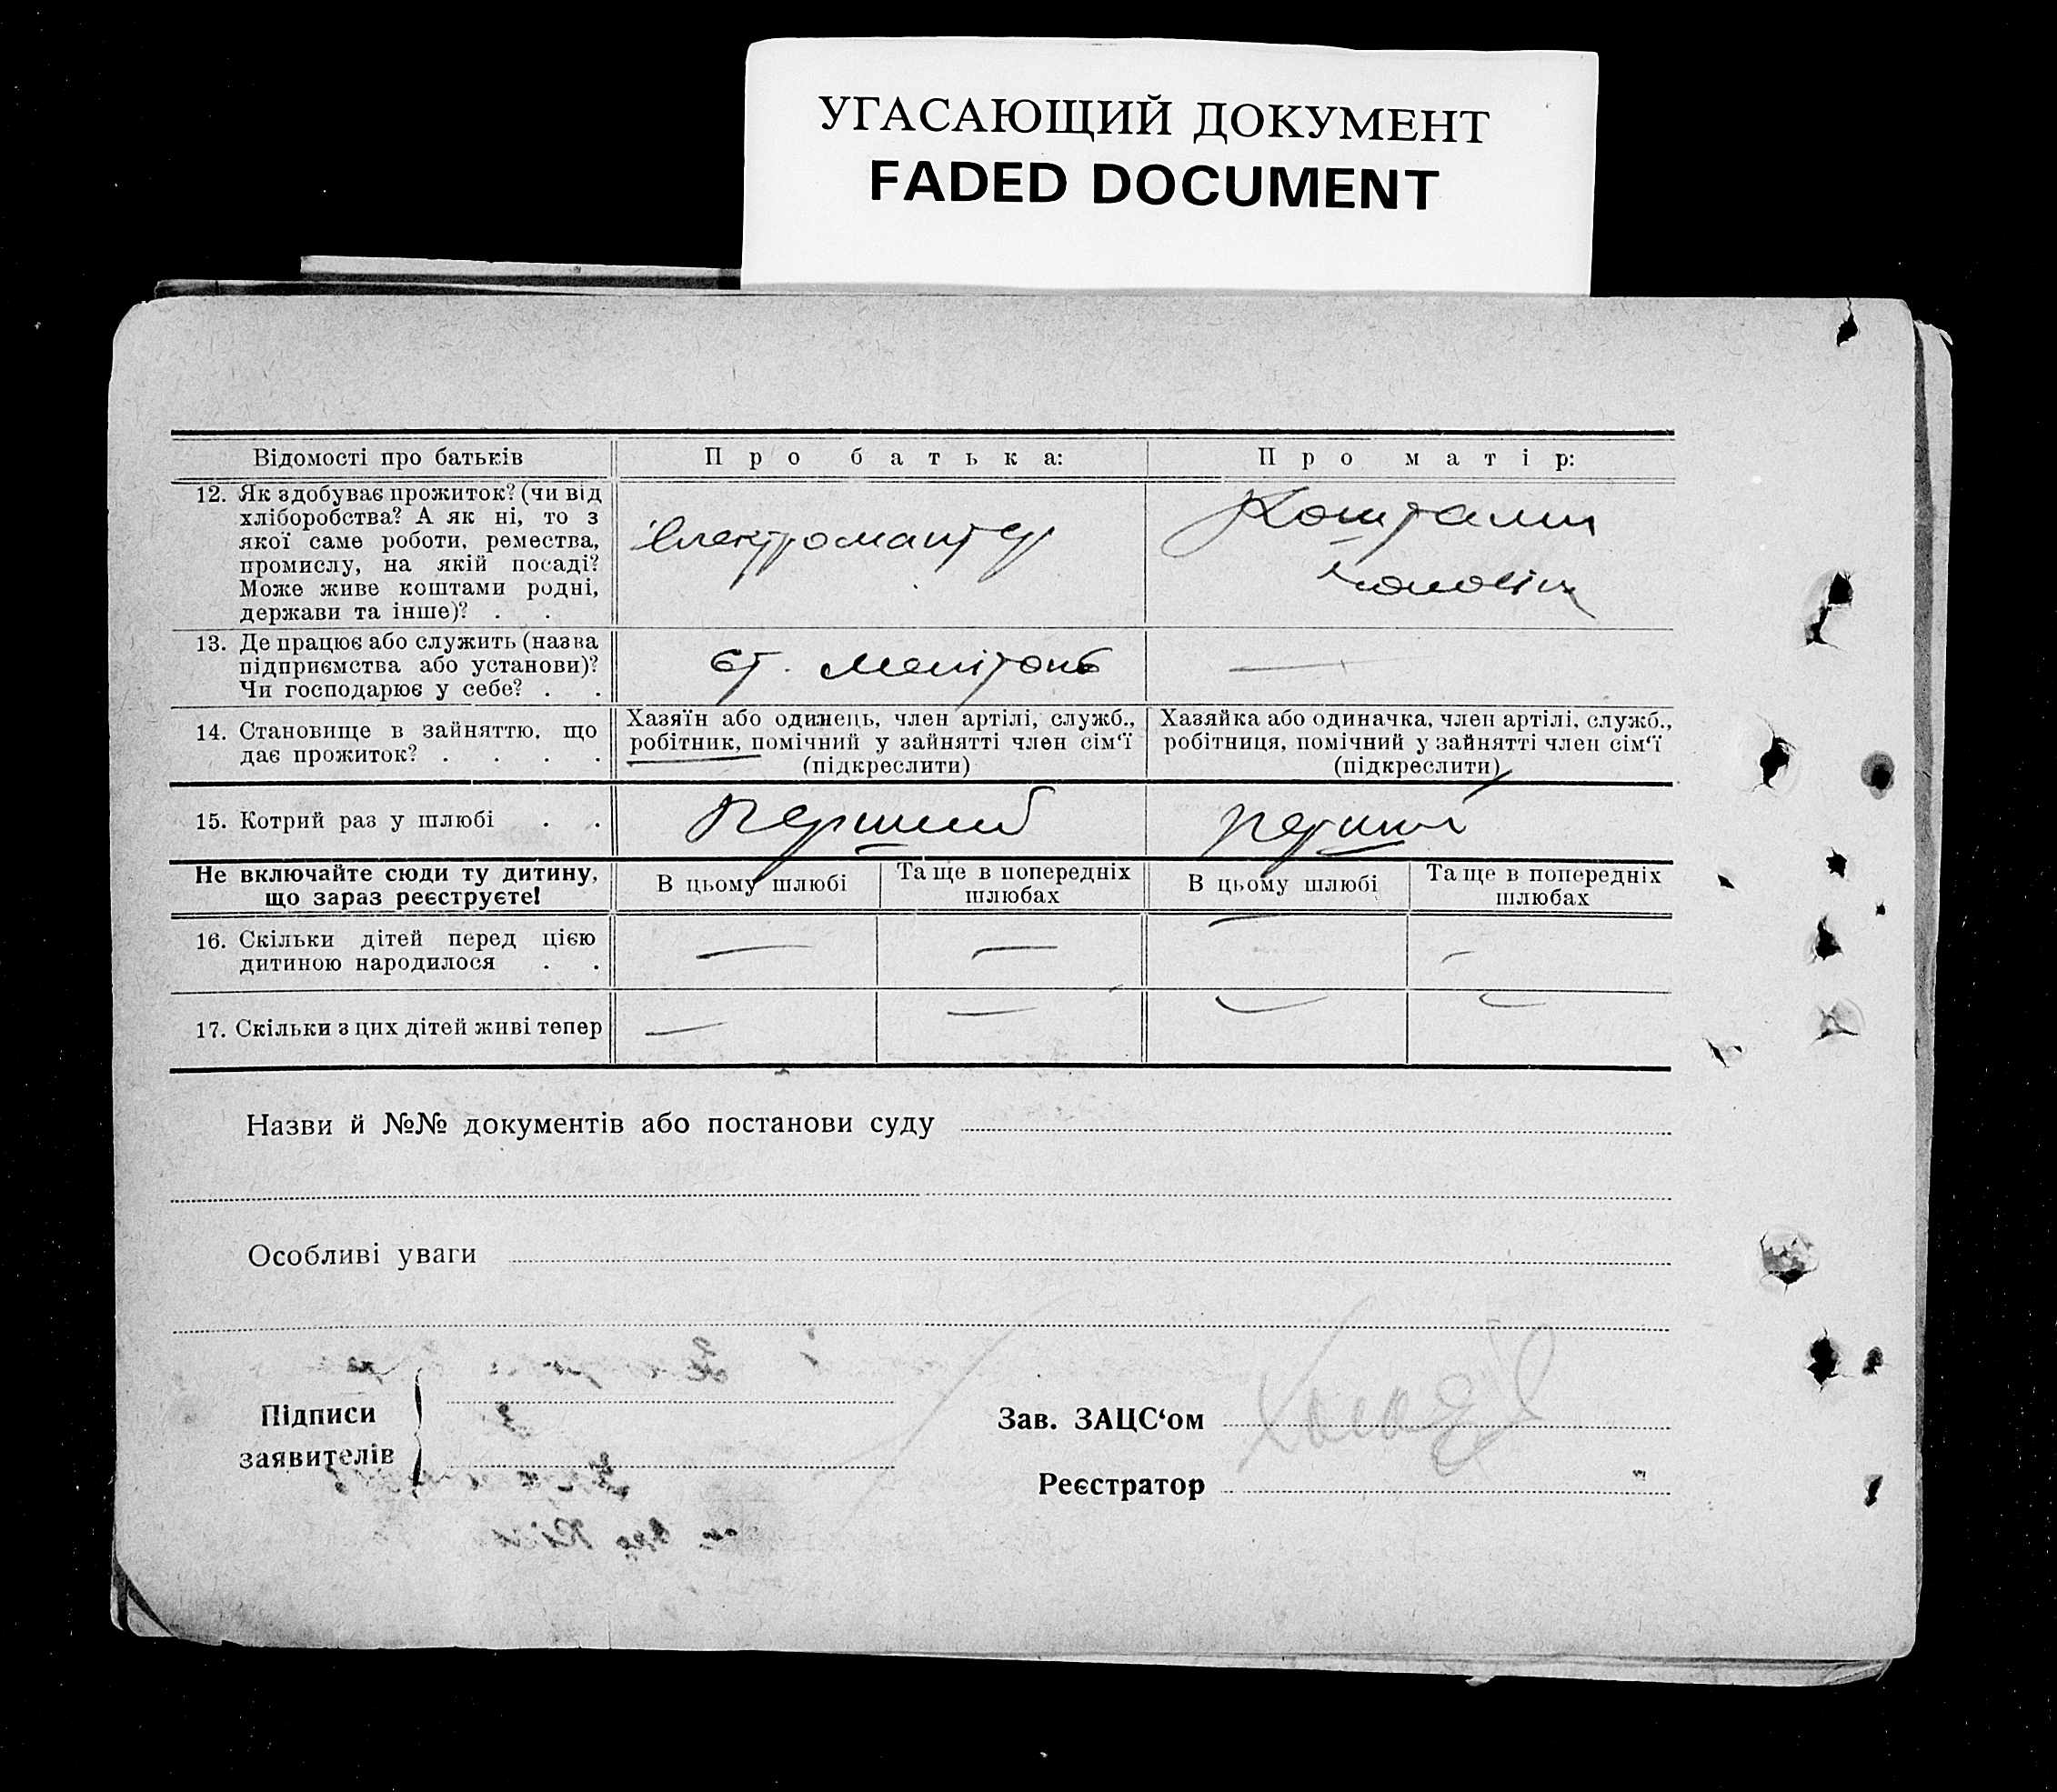 УГАСАЮЩИЙ ДОКУМЕНТ
FADED DOCUMENT
Відомості про батьків
Про батька:
Про матір:
12. Як здобуває прожиток? (чи від
хліборобства? А як ні, то з
якої саме роботи, ремества,
промислу, на якій посаді?
Може живе коштами родні,
держави та інше)? . .
Електромантер
Коштами
чоловіка
13. Де працює або служить (назва
підприємства або установи)?
Чи господарює у себе? . .
ст.
—
14. Становище в зайняттю, що
дає прожиток? . . . .
Хазяїн або одинець, член артілі, служб.,
робітник, помічний у зайнятті член сім'ї
(підкреслити)
Хазяйка або одиначка, член артілі, служб.,
робітниця, помічний у зайнятті член сім'ї
(підкреслити)
15. Котрий раз у шлюбі . .
Перший
перший
Не включайте сюди ту дитину,
що зараз реєструєте!
В цьому шлюбі
Та ще в попередніх
шлюбах
В цьому шлюбі
Та ще в попередніх
шлюбах
16. Скільки дітей перед цією
дитиною народилося . .
— — — —
17. Скільки з цих дітей живі тепер
— — — —
Назви й №№ документів або постанови суду
Особливі уваги
Підписи
заявителів
Зав. ЗАЦС'ом
Реєстратор